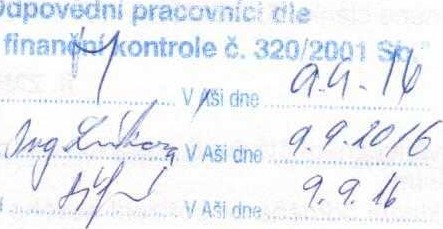 Odpovědní pracovníci dle
finanční kontrole č. 320/2001 Sb.
V Aši dne 9.9.16
Ing. V Aši dne 9.9.2016
V Aši dne 9.9.16